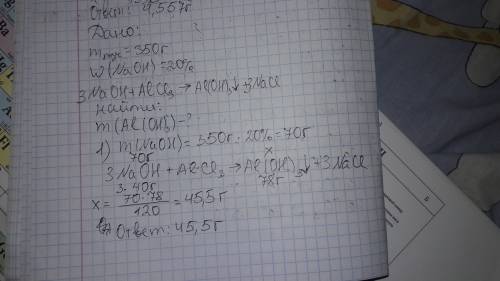 Ответ: 4,557г
Дано:
m = 350г
W(NaOH) = 20%
3NaOH + AlCl₃ → Al(OH)₃↓ + 3NaCl
найти:
m(Al(OH)₃) - ?
1) m(NaOH) = 350г · 20% = 70г
70г x
3NaOH + AlCl₃ → Al(OH)₃↓ + 3NaCl
3·40г 78г
x = 70·78 / 120 = 45,5г
Ответ: 45,5г